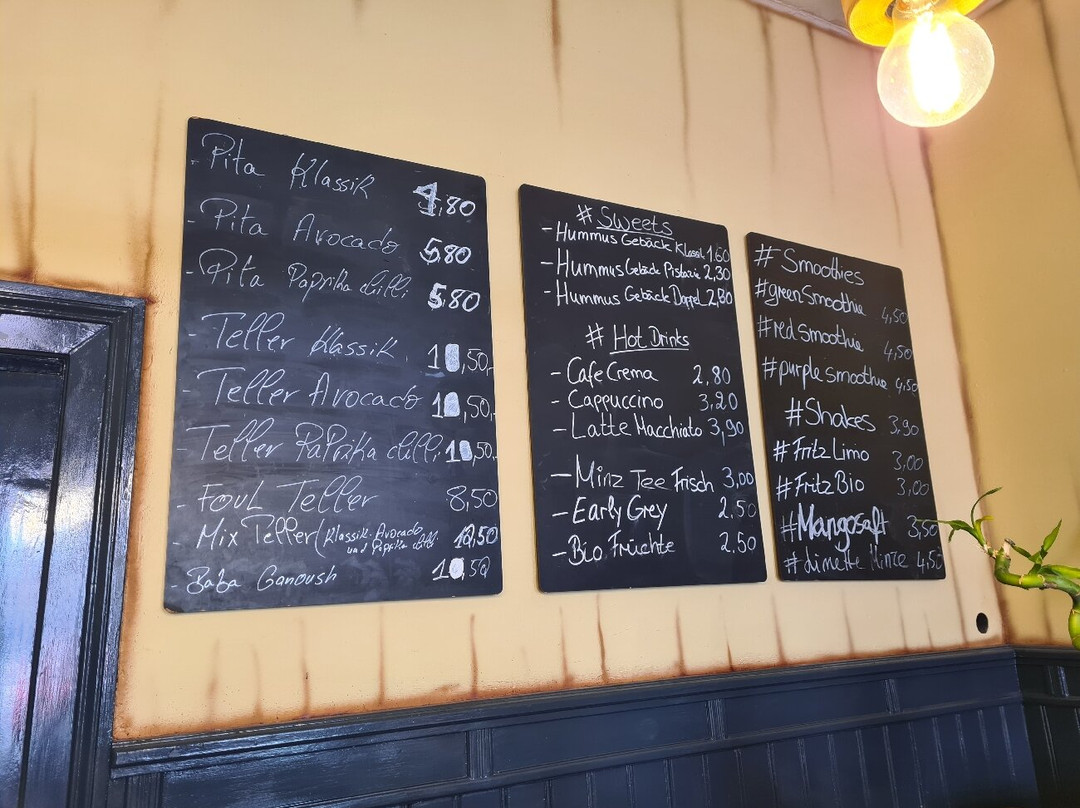 - Pita Klassik 4,80
- Pita Avocado 5,80
- Pita Paprika chilli 5,80
- Teller Klassik 10,50,-
- Teller Avocado 10,50,-
- Teller Paprika chilli 10,50,-
- Foul Teller 8,50
- Mix Teller (Klassik. Avocado
und Paprika chilli 12,50
- Baba Ganoush 10,50
# Sweets
- Hummus Gebäck Klassik 1,60
- Hummus Gebäck Pistazie 2,30
- Hummus Gebäck Doppel 2,80
# Hot Drinks
- Cafe Crema 2,80
- Cappuccino 3,20
- Latte Macchiato 3,90
- Minz Tee Frisch 3,00
- Early Grey 2,50
- Bio Früchte 2,50
# Smoothies
#green Smoothie 4,50
#red Smoothie 4,50
#purple Smoothie 4,50
#Shakes 3,90
#Fritz Limo 3,00
#Fritz Bio 3,00
#Mangosaft 3,50
#limette Minze 4,50